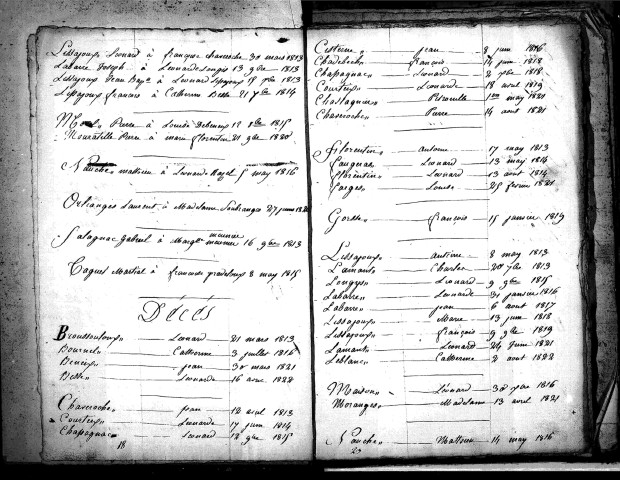 Lessajoux Leonard à françoise chaveroche 30 mars 1813
Labare Joseph à Leonarde Longis 13 9bre 1813
Lessajoux Jean Bapte à Leonard Lessajoux 18 7bre 1813
Lessajoux francois à Catherine Besse 21 7bre 1814
Pierre à Louise 1815
Mouratille Pierre à marie florentin 21 9bre 1820
Nauche mathieu à Leonarde Mazel 5 may 1816
Orlianges Laurent à Madelaine 27
Salagnac Gabriel à Margte meunier
meunier 16 9bre 1813
Taquet Martial à francoise pradeloux 8 may 1815
Décés
Broussouloux Leonard 21 mars 1813
Bournel Catherine 3 juillet 1816
Beneix jean 30 mars 1821
Besse Leonarde 16 1822
Chaveroche jean 12 aout 1813
Courteix Leonarde 17 juin 1814
Chapagnac Leonard 18 9bre 1815
18
Cisterne jean 8 juin 1816
Chadebech françois 14 juin 1818
Chapagnac Leonard 2 7bre 1818
Courteix Leonarde 18 aout 1819
Chastagnier Petronille 1er may 1820
Chaveroche Pierre 14 aout 1821
Florentin antoine 17 may 1813
Faugeras Leonard 13 may 1814
florentin Leonard 13 aout 1814
farges Louise 25 fevrier 1821
Gorsse françois 15 janvier 1819
Lessajoux antoine 8 may 1813
Lamant Charles 20 7bre 1813
Longy Leonard 9 9bre 1815
Labarre Leonarde 31 janvier 1816
Labarre jean 6 aout 1817
Lessajoux Marie 13 juin 1818
Lessajoux françois 9 9bre 1819
Lamant Leonard 24 juin 1821
Leblanc Catherine 2 aout 1822
Maison Leonard 30 1816
Moranges Madelaine 13 avril 1821
Nauche Mathieu 14 may 1816